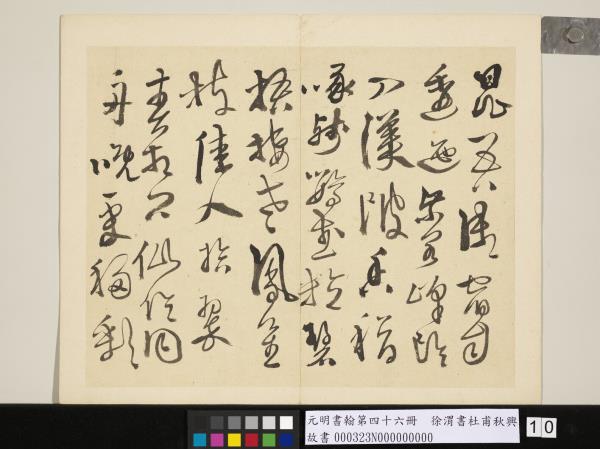 昆吾御宿自
逶迤紫閣峰陰
入渼陂香稻
啄殘鸚鵡粒碧
梧棲老鳳凰
枝佳人拾翠
春相問仙侶同
舟晚更移彩
元明書翰第四十六冊 徐渭書杜甫秋興
故書 000323N000000000
10